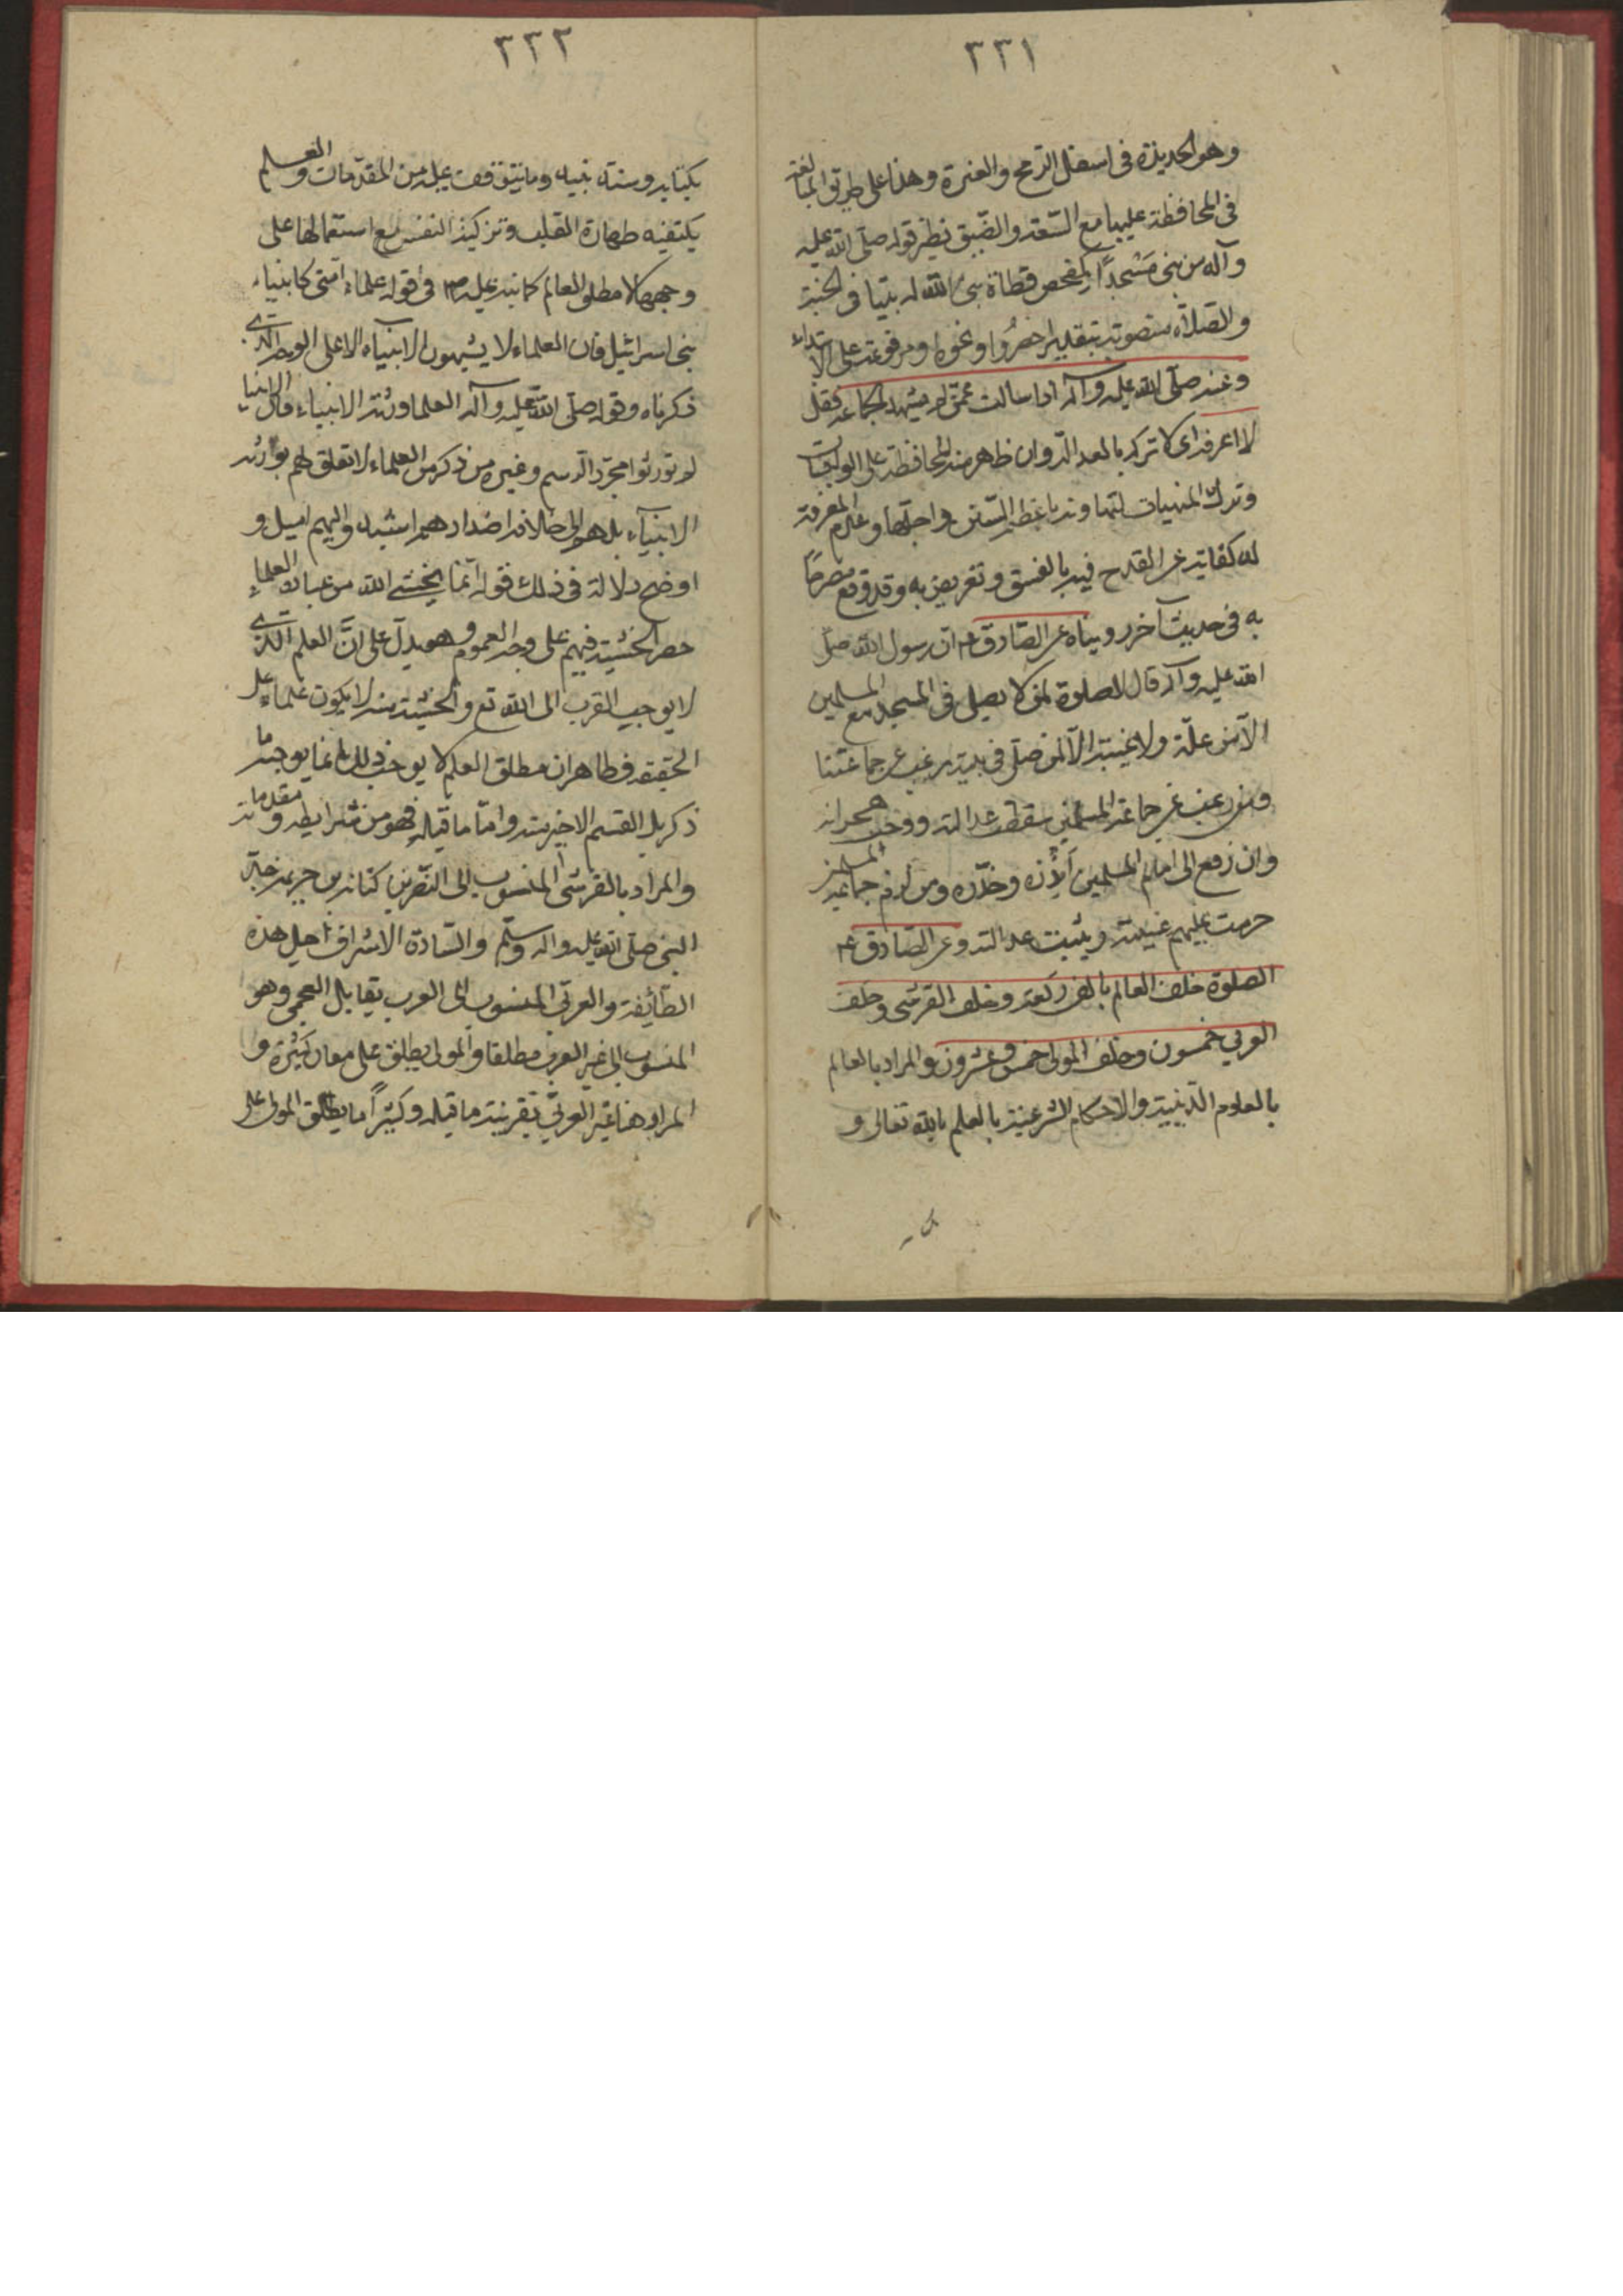 ٣٣١
وهو الحديدة في اسفل الرمح والعنزة وهذا على طريق المبالغة
في المحافظة عليها مع السّعة والضّيق نظير قوله صلّى الله عليه
وآله من بنى مَسْجدًا كمفحص قطاة بنى الله له بيتا في الجنة
والصّلاة منصوبة بتقدير احضرُوا ونحوه او مرفوعة على الابتداء
وعنه صلّى الله عليه وآله اذا سالت عمّن لم يشهد الجماعة فقل
لا اعرفه اى لا تزكه بالعدالة وان ظهر منه المحافظة على الواجبات
وترك المنهيات لتهاونه باعظم السّنن واجلّها وعدم المعرفة
له كفاية عن القدح فيه بالفسق وتعريض به وقد وقع مصرحًا
به في حديث آخر رويناه عن الصّادق ع ان رسول الله صلّى
الله عليه وآله قال لا صلوة لمن لا يصلى في المسجد مع المسلمين
الّا من علّة ولا غيبة الّا لمن صلّى في بيته ورغب عن جماعتنا
ومن رغب عن جماعة المسلمين سقطت عدالته ووجب هجرانه
وان رفع الى امام المسلمين أنذره وحذّره ومن لزم جماعة المسلمين
حرمت عليهم غيبته ويثبت عدالته وعن الصّادق ع
الصلوة خلف العالم بالف ركعة وخلف القرشى
وخلف
العربي خمسون وخلف المولى خمس وعشرون والمراد بالعالم
بالعلوم الدّينية والاحكام الشرعية بالعلم بالله تعالى و
٣٣٢
بكتابه وسنة نبيه وما يتوقف عليه من المقدّمات والعلم
بكيفية طهارة القلب وتزكية النفس مع استعمالها على
وجهها لا مطلق العالم كما نبه عليه ص في قوله علماء امّتى كانبياء
بنى اسرائيل فان العلماء لا يشبهون الانبياء الا على الوجه الّذى
ذكرناه وقوله صلّى الله عليه وآله العلما ورثة الانبياء فان الانبيا
لم تورثوا مجرّد الرسم وغيره من ذكر من العلماء لا تعلق لهم بوارثه
الانبياء بل هو الى خلافه اضدادهم اشبه واليهم اميل و
اوضح دلالة في ذلك قوله انّما يخشى الله من عباده العلماء
حصر الخشية فيهم على وجه العموم وهو يدلّ على انَّ العلم الّذى
لا يوجب القرب الى الله تع والخشية منه لا يكون علماء على
الحقيقة فظاهر ان مطلق العلم لا يوجب ذلك انما يوجبه ما
ذكر بل القسم الاخير منه وامّا ما قبله فهو من شرايطه ومقدماته
والمراد بالقرشى المنسوب الى النّضر بن كنانة بن خزيمة جدّ
النبى صلّى الله عليه واله وسلّم والسّادة الاشراف اجل هذه
الطّائفة والعربي المنسوب الى العرب يقابل العجمى وهو
المنسوب الى غير العرب مطلقا والمولى يطلق على معان كثيرة و
المراد هنا غير العربيّ بقرينة ما قبله وكثيرًا ما يطلق المولى على